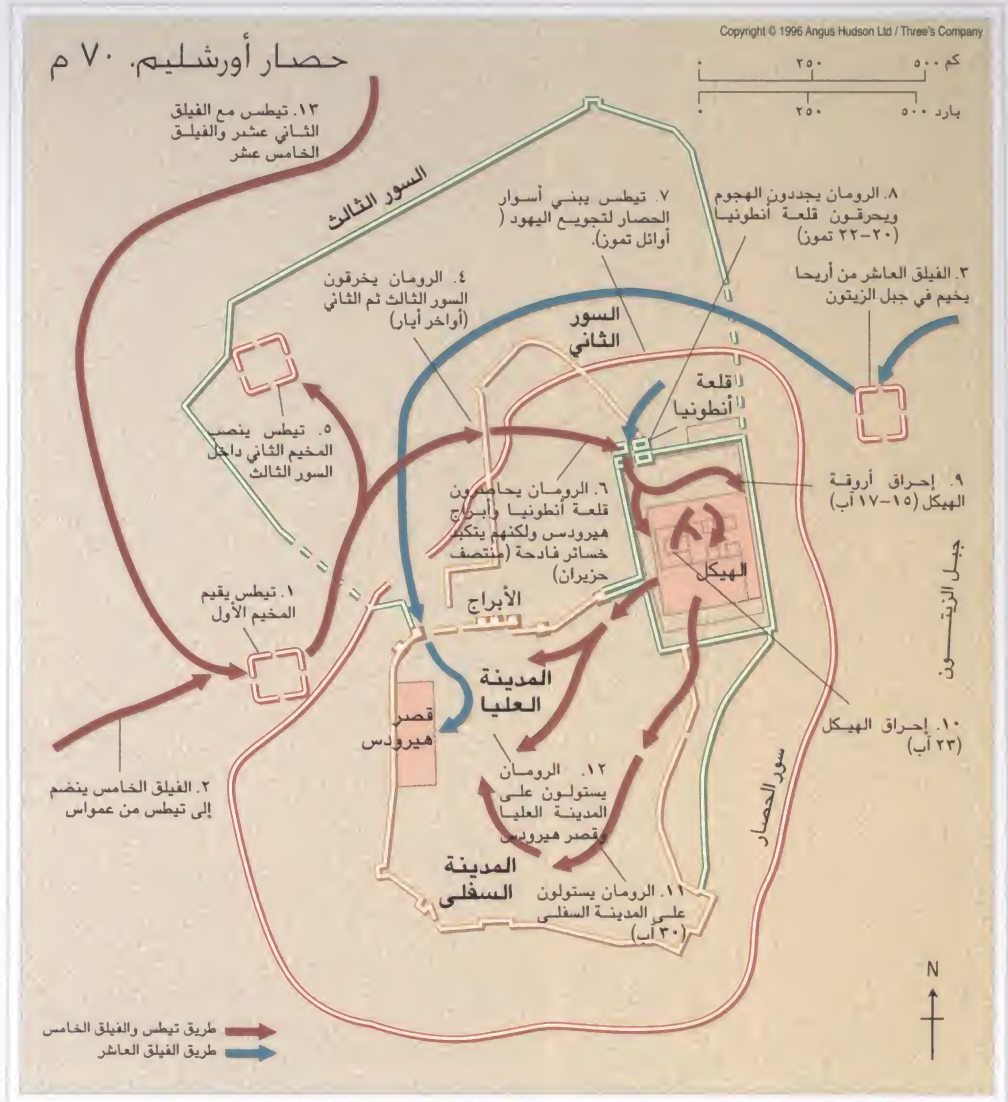 Copyright © 1996 Angus Hudson Ltd / Three's Company
حصار أورشليم. ٧٠ م
٠ ٢٥٠ ٥٠٠ كم
٠ ٢٥٠ ٥٠٠ يارد
١٣. تيطس مع الفيلق
الثاني عشر والفيلق
الخامس عشر
السور الثالث
٧. تيطس يبني أسوار
الحصار لتجويع اليهود (
أوائل تموز).
٨. الرومان يجددون الهجوم
ويحرقون قلعة أنطونيا
(٢٠–٢٢ تموز)
٣. الفيلق العاشر من أريحا
يخيم في جبل الزيتون
٤. الرومان يخرقون
السور الثالث ثم الثاني
(أواخر أيار)
السور
الثاني
قلعة
أنطونيا
٥. تيطس ينصب
المخيم الثاني داخل
السور الثالث
٦. الرومان يحاصرون
قلعة أنطونيا وأبراج
هيرودس ولكنهم يتكبد
خسائر فادحة (منتصف
حزيران)
٩. إحراق أروقة
الهيكل (١٥–١٧ آب)
الهيكل
جبل الزيتون
١. تيطس يقيم
المخيم الأول
الأبراج
المدينة
العليا
قصر
هيرودس
١٠. إحراق الهيكل
(٢٣ آب)
٢. الفيلق الخامس ينضم
إلى تيطس من عمواس
١٢. الرومان
يستولون على
المدينة العليا
وقصر هيرودس
سور الحصار
المدينة
السفلى
١١. الرومان يستولون
على المدينة السفلى
(٣٠ آب)
N
طريق تيطس والفيلق الخامس
طريق الفيلق العاشر